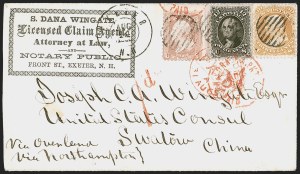 S. DANA WINGATE,
Licensed Claim Agent,
Attorney at Law,
AND
NOTARY PUBLIC,
FRONT ST., EXETER, N. H.
Joseph C. A. Wingate Esqr
United States Consul
Swatow
China
Via Overland
Via Northampton